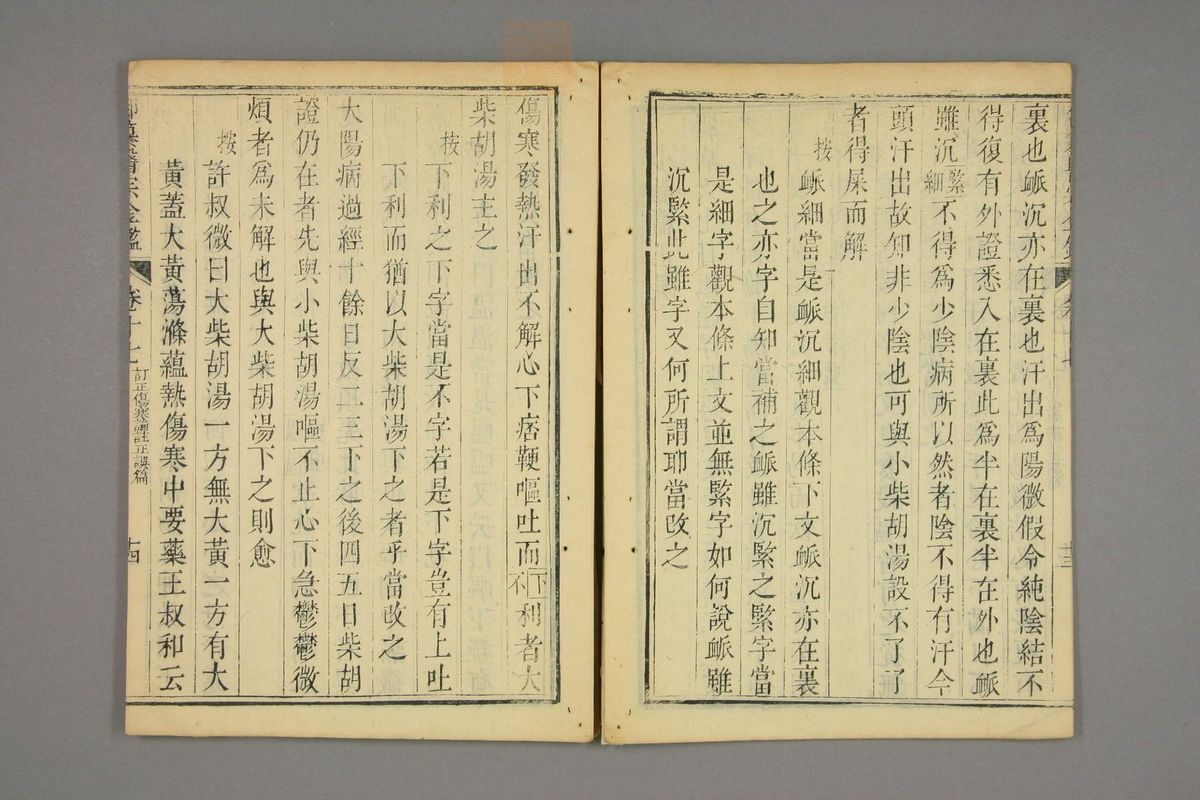 裏也脈沉亦在裏也汗出爲陽微假令純陰結不
得復有外證悉入在裏此爲半在裏半在外也脈
雖沉緊細不得爲少陰病所以然者陰不得有汗今
頭汗出故知非少陰也可與小柴胡湯設不了了
者得屎而解
按脈細當是脈沉細觀本條下文脈沉亦在裏
也之亦字自知當補之脈雖沉緊之緊字當
是細字觀本條上文並無緊字如何說脈雖
沉緊此雖字又何所謂耶當改之
傷寒發熱汗出不解心下痞鞕嘔吐而下不利者大
柴胡湯主之
按下利之下字當是不字若是下字豈有上吐
下利而猶以大柴胡湯下之者乎當改之
太陽病過經十餘日反二三下之後四五日柴胡
證仍在者先與小柴胡湯嘔不止心下急鬱鬱微
煩者爲未解也與大柴胡湯下之則愈
按許叔微曰大柴胡湯一方無大黃一方有大
黃蓋大黃蕩滌蘊熱傷寒中要藥王叔和云
御纂醫宗金鑑 卷十七 訂正傷寒論註正誤篇 十四